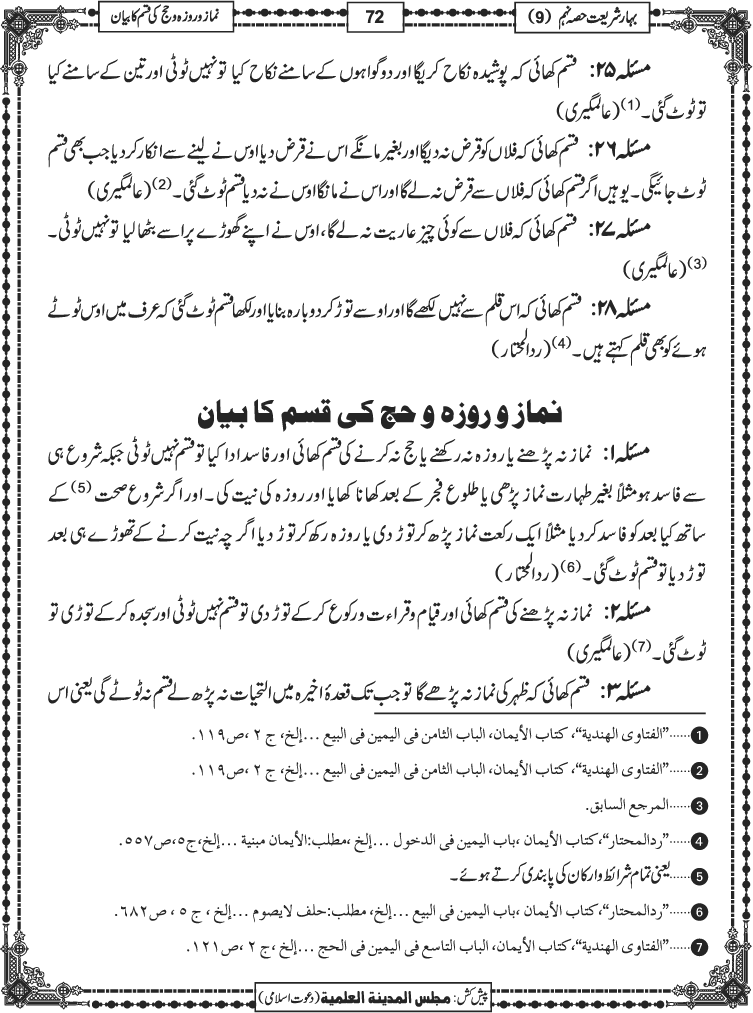 بہار شریعت حصہ نہم (9)
72
نماز و روزہ و حج کی قسم کا بیان
مسئلہ ۲۵: قسم کھائی کہ پوشیدہ نکاح کریگا اور دو گواہوں کے سامنے نکاح کیا تو نہیں ٹوٹی اور تین کے سامنے کیا
تو ٹوٹ گئی۔(1) (عالمگیری)
مسئلہ ۲۶: قسم کھائی کہ فلاں کو قرض نہ دیگا اور بغیر مانگے اس نے قرض دیا اوس نے لینے سے انکار کر دیا جب بھی قسم
ٹوٹ جائیگی۔ یوہیں اگر قسم کھائی کہ فلاں سے قرض نہ لے گا اور اس نے مانگا اوس نے نہ دیا قسم ٹوٹ گئی۔(2) (عالمگیری)
مسئلہ ۲۷: قسم کھائی کہ فلاں سے کوئی چیز عاریت نہ لے گا، اوس نے اپنے گھوڑے پر اسے بٹھا لیا تو نہیں ٹوٹی۔
(3) (عالمگیری)
مسئلہ ۲۸: قسم کھائی کہ اس قلم سے نہیں لکھے گا اور اوسے توڑ کر دوبارہ بنایا اور لکھا قسم ٹوٹ گئی کہ عرف میں اوس ٹوٹے
ہوئے کو بھی قلم کہتے ہیں۔(4) (ردالمحتار)
نماز و روزہ و حج کی قسم کا بیان
مسئلہ ۱: نماز نہ پڑھنے یا روزہ نہ رکھنے یا حج نہ کرنے کی قسم کھائی اور فاسد ادا کیا تو قسم نہیں ٹوٹی جبکہ شروع ہی
سے فاسد ہو مثلاً بغیر طہارت نماز پڑھی یا طلوع فجر کے بعد کھانا کھایا اور روزہ کی نیت کی۔ اور اگر شروع صحت (5) کے
ساتھ کیا بعد کو فاسد کر دیا مثلاً ایک رکعت نماز پڑھ کر توڑ دی یا روزہ رکھ کر توڑ دیا اگرچہ نیت کرنے کے تھوڑے ہی بعد
توڑ دیا تو قسم ٹوٹ گئی۔(6) (ردالمحتار)
مسئلہ ۲: نماز نہ پڑھنے کی قسم کھائی اور قیام و قراءت و رکوع کر کے توڑ دی تو قسم نہیں ٹوٹی اور سجدہ کر کے توڑی تو
ٹوٹ گئی۔(7) (عالمگیری)
مسئلہ ۳: قسم کھائی کہ ظہر کی نماز نہ پڑھے گا تو جب تک قعدۂ اخیرہ میں التحیات نہ پڑھ لے قسم نہ ٹوٹے گی یعنی اس
1 ......”الفتاوی الهندية“، كتاب الأيمان، الباب الثامن فی اليمين فی البيع ...إلخ، ج ٢ ،ص١١٩.
2 ......”الفتاوی الهندية“، كتاب الأيمان، الباب الثامن فی اليمين فی البيع ...إلخ، ج ٢ ،ص١١٩.
3 ......المرجع السابق.
4 ......”ردالمحتار“، كتاب الأيمان ،باب اليمين فی الدخول ...إلخ ،مطلب:الأيمان مبنية ...إلخ،ج٥،ص٥٥٧.
5 ......یعنی تمام شرائط وارکان کی پابندی کرتے ہوئے۔
6 ......”ردالمحتار“، كتاب الأيمان ،باب اليمين فی البيع ...إلخ، مطلب:حلف لايصوم ...إلخ ، ج ٥ ، ص٦٨٢.
7 ......”الفتاوی الهندية“،كتاب الأيمان، الباب التاسع فی اليمين فی الحج ...إلخ ،ج ٢ ،ص١٢١.
پیش کش: مجلس المدینۃ العلمیۃ (دعوت اسلامی)